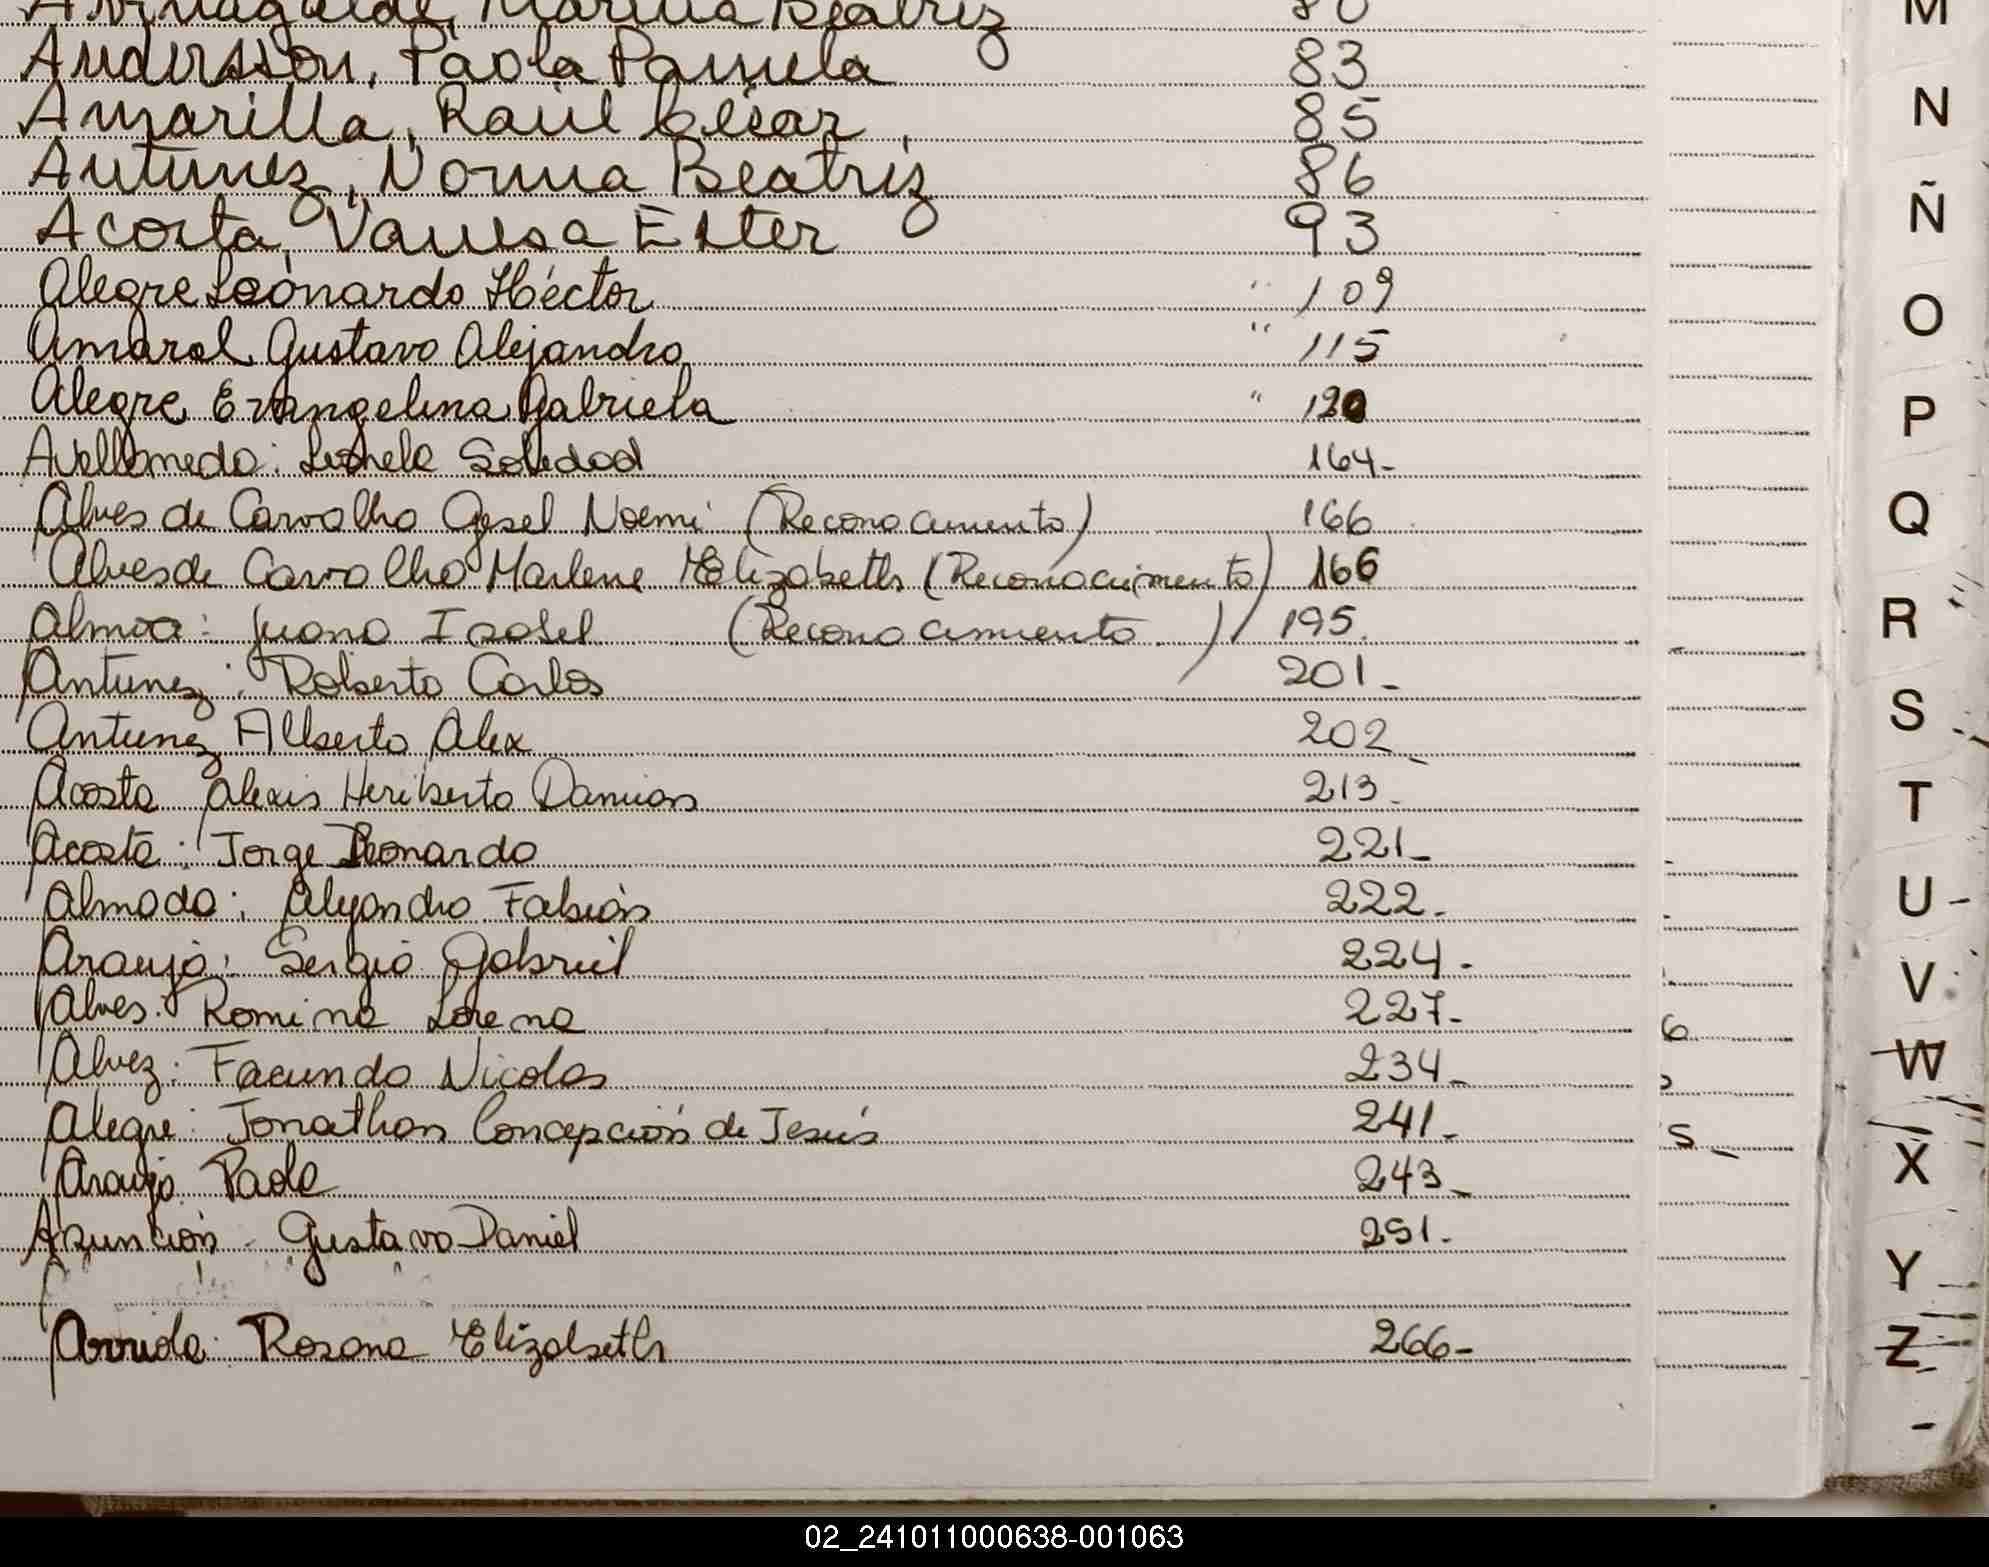 Marina Beatriz 80
Andersson, Paola Pamela 83
Amarilla, Raúl César, 85
Antunez, Norma Beatriz 86
Acosta, Vanesa Ester 93
Alegre Leonardo Héctor " 109
Amaral Gustavo Alejandro " 115
Alegre Evangelina Gabriela " 120
Avellaneda: Leonela Soledad 164-
Alves de Carvalho Gesel Noemi (Reconocimiento) 166
Alves de Carvalho Marlene Elizabeth (Reconocimiento) 166
Juana Isabel (Reconocimiento) 195.
Antunez: Roberto Carlos 201-
Antunez Alberto Alex 202-
Acosta Alexis Heriberto Damian 213-
Acosta: Jorge Leonardo 221-
Almada: Alejandro Fabián 222-
Araujo: Sergio Gabriel 224-
Alves: Romina Lorena 227-
Alvez: Facundo Nicolas 234-
Alegre: Jonathan Concepción de Jesús 241-
Araujo Paola 243-
Asunción - Gustavo Daniel 251-
Arriola: Rosana Elizabeth 266-
6
5
M
N
Ñ
O
P
Q
R
S
T
U
V
W
X
Y
Z
02_241011000638-001063